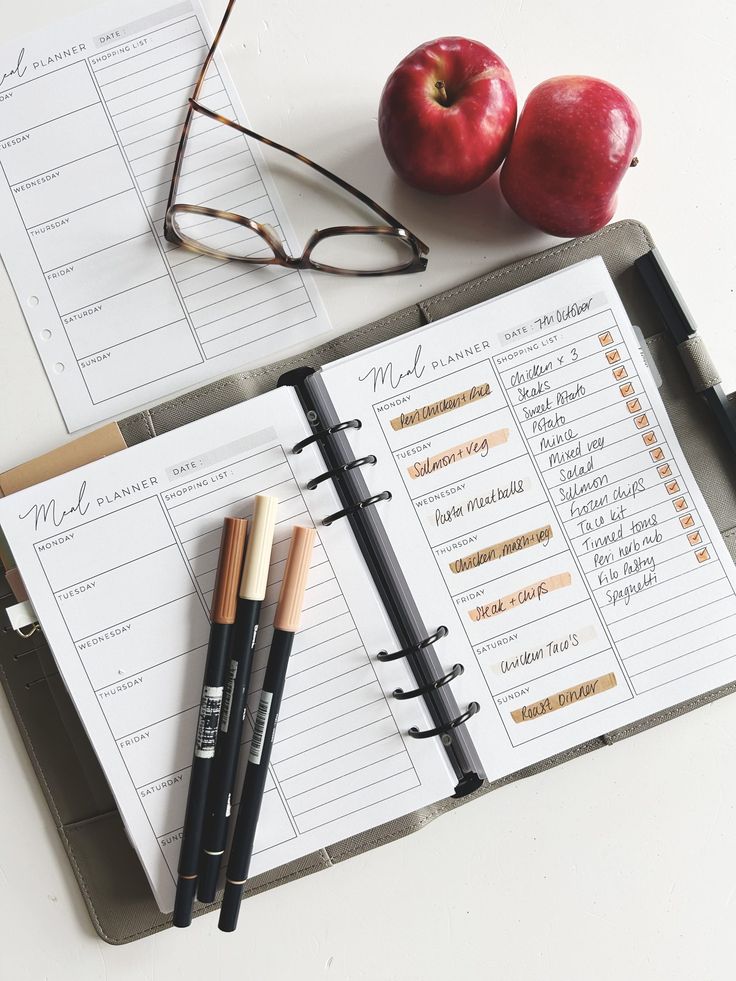 eal PLANNER
DATE :
SHOPPING LIST :
DAY
TUESDAY
WEDNESDAY
THURSDAY
FRIDAY
SATURDAY
SUNDAY
Meal PLANNER
DATE :
SHOPPING LIST :
MONDAY
TUESDAY
WEDNESDAY
THURSDAY
FRIDAY
SATURDAY
SUNDAY
Meal PLANNER
DATE : 7th October
MONDAY
Peri Chicken + Rice
TUESDAY
Salmon + veg
WEDNESDAY
Pasta Meatballs
THURSDAY
Chicken, mash + veg
FRIDAY
Steak + chips
SATURDAY
Chicken Taco's
SUNDAY
Roast Dinner
SHOPPING LIST :
chicken x 3
Steaks
Sweet Potato
Potato
Mince
Mixed veg
Salad
Salmon
frozen chips
Taco kit
Tinned toms
Peri herb rub
Filo Pastry
Spaghetti